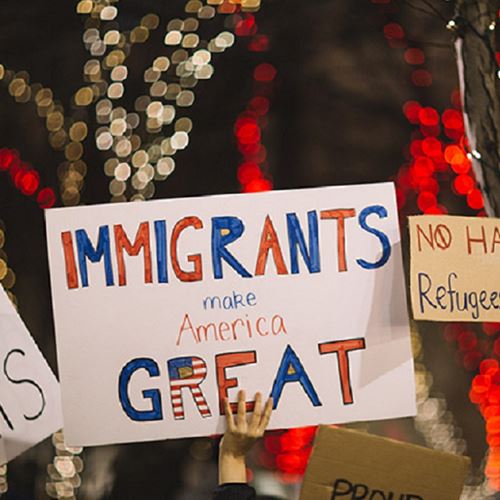 IMMIGRANTS
make
America
GREAT
NO HA
Refugee